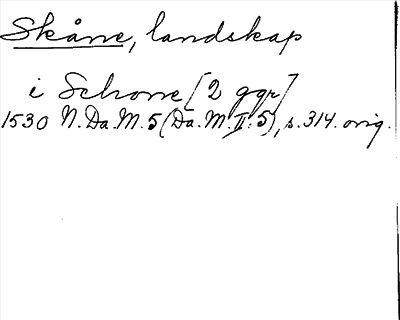 Skåne, landskap
i Schone [2 ggr]
1530 N.Da.M. 5 (Da.M. II:5), s. 314. orig.